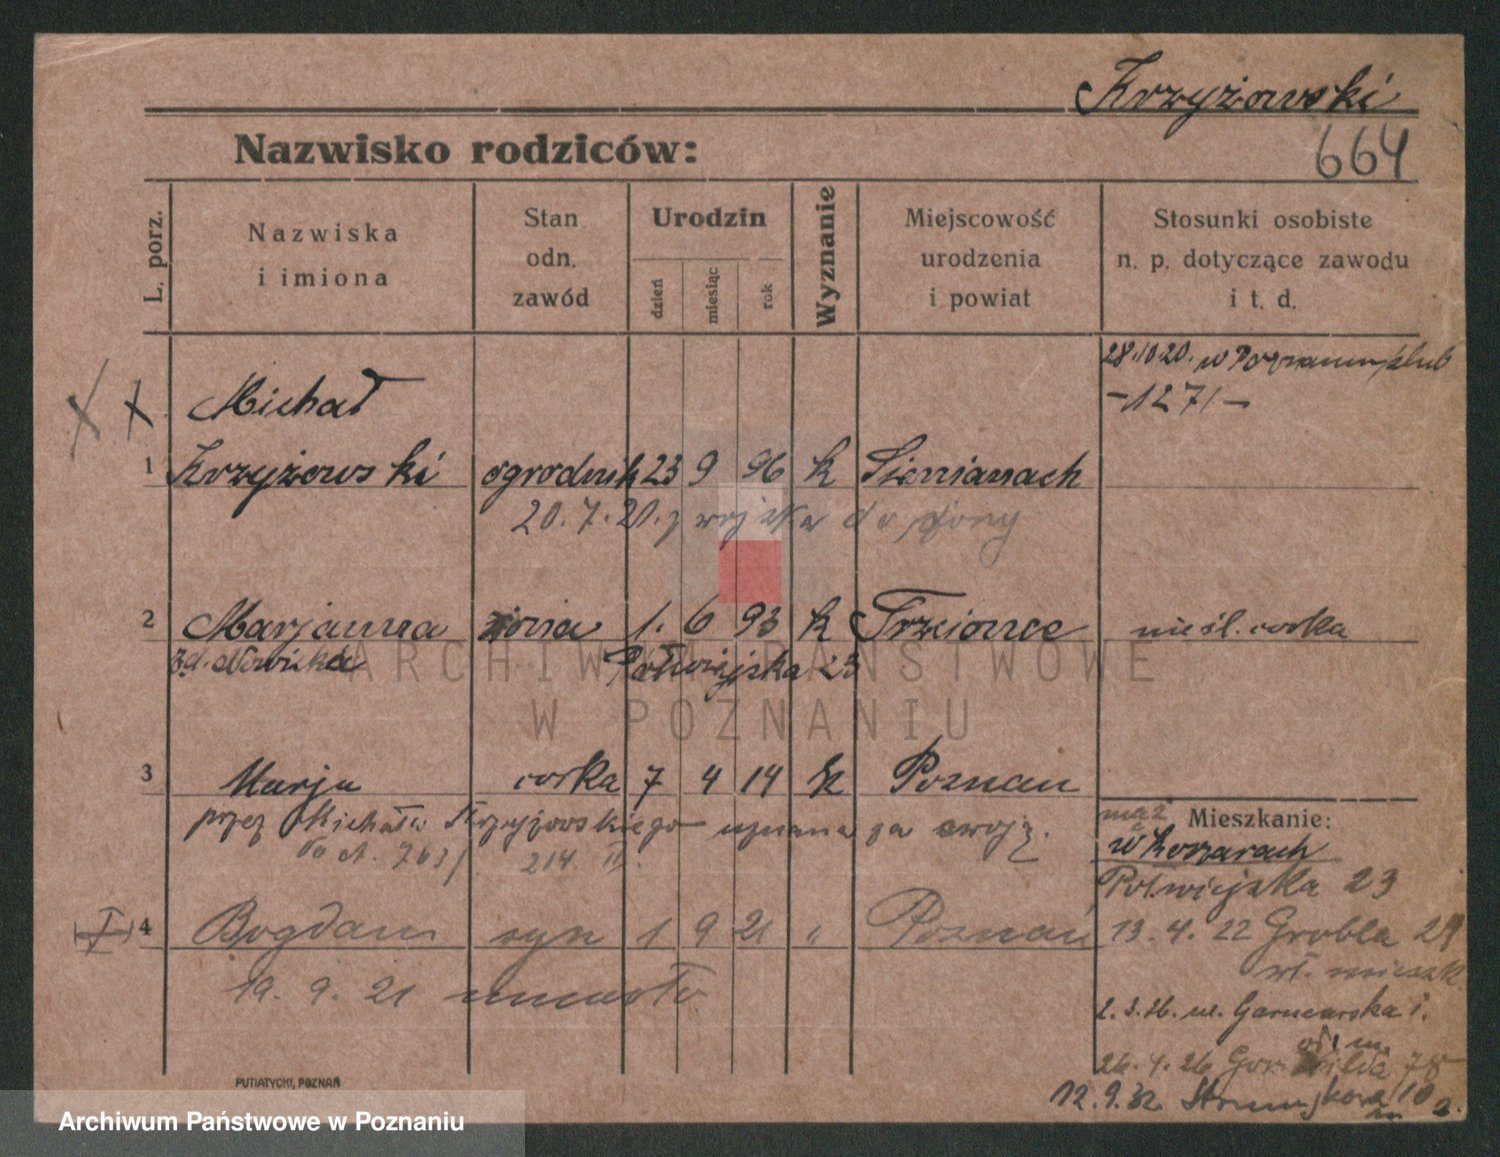 Krzyżowski
Nazwisko rodziców:
664
L. porz.
Nazwiska
i imiona
Stan
odn.
zawód
Urodzin
dzień
miesiąc
rok
Wyznanie
Miejscowość
urodzenia
i powiat
Stosunki osobiste
n. p. dotyczące zawodu
i t. d.
28.10.20. w Poznaniu ślub
-1271-
X X Michał
1 Krzyżowski ogrodnik 23 9 96 k Sienianach
20.7.21. z wojska do żony
2 Marjanna żona 1. 6 93 k Trzcionce nieśl. corka
zd. Nowicka Półwiejska 23
ARCHIWUM PAŃSTWOWE
W POZNANIU
3 Marja corka 7 4 14 k Poznań
przez Michała Krzyżowskiego uznana za swoją.
214. II.
Mieszkanie:
mąż
w Koszarach
Półwiejska 23
4 Bogdan syn 1 9 21 " Poznań
19. 9. 21 umarło
13. 4. 22 Grobla 29
wł. mieszk.
1. 3. 26. ul. Garncarska 1.
26. 4. 26 Gór. Wilda 78
12. 9. 32. 10
PUTIATYCKI, POZNAŃ
Archiwum Państwowe w Poznaniu